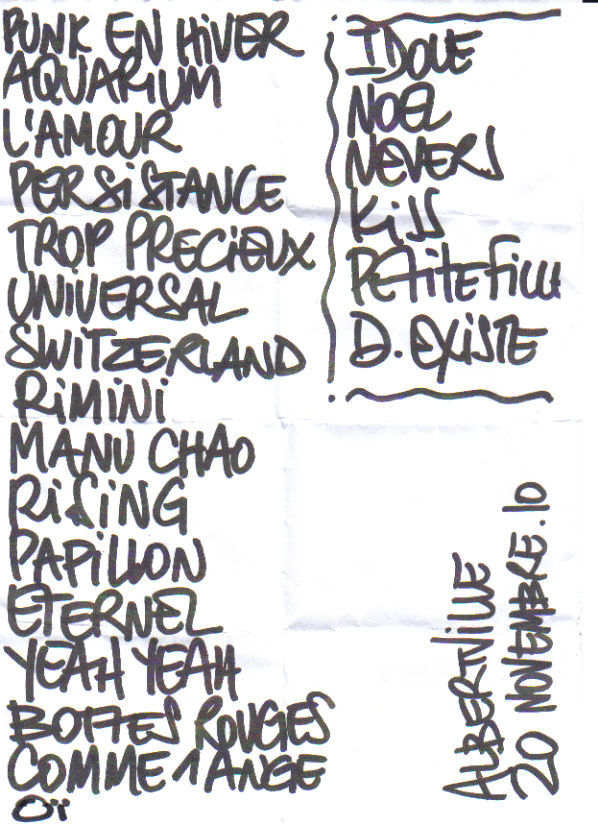 PUNK EN HiVER
AQUARiUM
L'AMOUR
PERSiSTANCE
TROP PRECiEUX
UNiVERSAL
SWiTZERLAND
RiMiNi
MANU CHAO
RiSiNG
PAPiLLON
ETERNEL
YEAH YEAH
BOTTES ROUGES
COMME 1 ANGE
Oï
IDOLE
NOEL
NEVERS
KiSS
PETiTE FiLLE
D. EXiSTE
ALBERTViLLE
20 NOVEMBRE.10